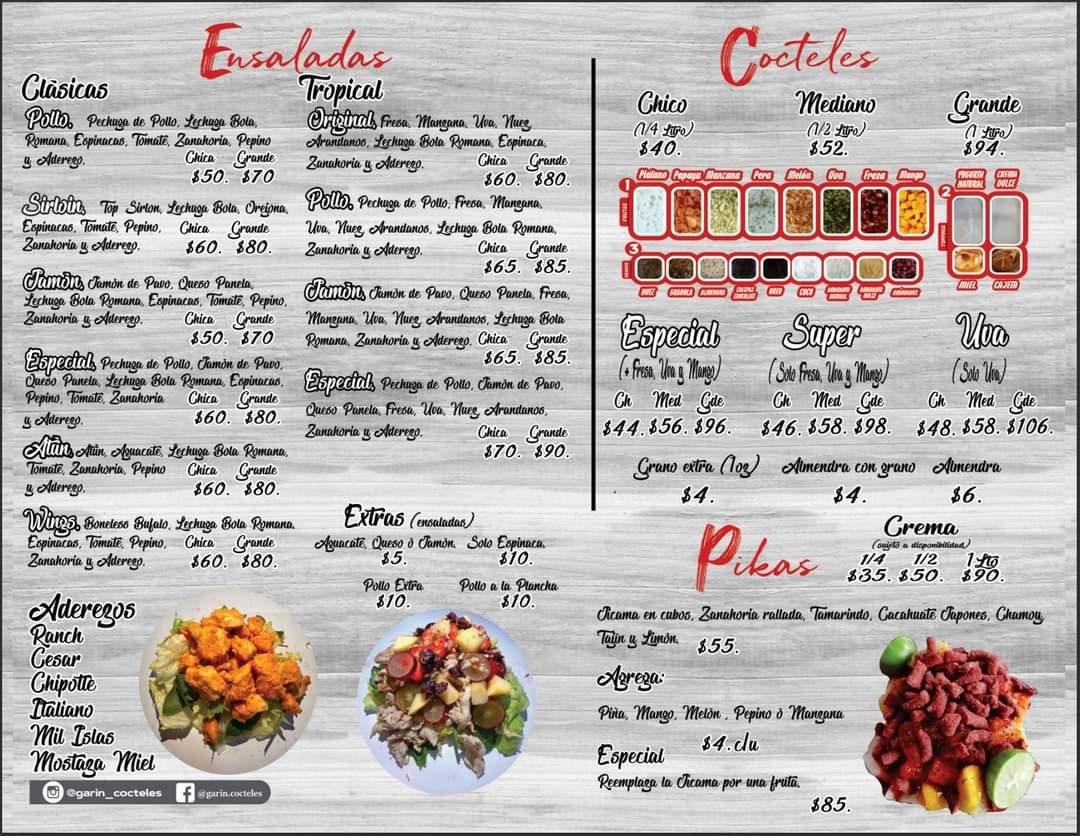 Ensaladas
Clàsicas
Pollo, Pechuga de Pollo, Lechuga Bola,
Romana, Espinacas, Tomate, Zanahoria, Pepino
y Aderezo.
Chica Grande
$50. $70
Sirloin, Top Sirlon, Lechuga Bola, Orejona,
Espinacas, Tomate, Pepino,
Zanahoria y Aderezo.
Chica Grande
$60. $80.
Jamòn, Jamòn de Pavo, Queso Panela,
Lechuga Bola Romana, Espinacas, Tomate, Pepino,
Zanahoria y Aderezo.
Chica Grande
$50. $70
Especial, Pechuga de Pollo, Jamòn de Pavo,
Queso Panela, Lechuga Bola Romana, Espinacas,
Pepino, Tomate, Zanahoria
y Aderezo.
Chica Grande
$60. $80.
Atùn, Atùn, Aguacate, Lechuga Bola Romana,
Tomate, Zanahoria, Pepino
y Aderezo.
Chica Grande
$60. $80.
Wings, Boneless Bufalo, Lechuga Bola Romana,
Espinacas, Tomate, Pepino,
Zanahoria y Aderezo.
Chica Grande
$60. $80.
Tropical
Original, Fresa, Manzana, Uva, Nuez
Arandanos, Lechuga Bola Romana, Espinaca,
Zanahoria y Aderezo.
Chica Grande
$60. $80.
Pollo, Pechuga de Pollo, Fresa, Manzana,
Uva, Nuez Arandanos, Lechuga Bola Romana,
Zanahoria y Aderezo.
Chica Grande
$65. $85.
Jamòn, Jamòn de Pavo, Queso Panela, Fresa,
Manzana, Uva, Nuez Arandanos, Lechuga Bola
Romana, Zanahoria y Aderezo.
Chica Grande
$65. $85.
Especial, Pechuga de Pollo, Jamòn de Pavo,
Queso Panela, Fresa, Uva, Nuez Arandanos,
Zanahoria y Aderezo.
Chica Grande
$70. $90.
Extras (ensaladas)
Aguacate, Queso ò Jamòn,
$5.
Solo Espinaca,
$10.
Pollo Extra
$10.
Pollo a la Plancha
$10.
Aderezos
Ranch
Cesar
Chipotle
Italiano
Mil Islas
Mostaza Miel
@garin_cocteles @garin.cocteles
Cocteles
Chico Mediano Grande
(1/4 Litro) (1/2 Litro) (1 Litro)
$40. $52. $94.
1 FRUTAS
Platano Papaya Manzana Pera Melón Uva Fresa Mango
2 TOPPINGS
YOGURTH NATURAL CREMA DULCE
MIEL CAJETA
3 GRANOS
NUEZ GRANOLA ALMENDRA CHISPAS CHOCOLATE OREO COCO AMARANTO NATURAL AMARANTO DULCE ARANDANOS
Especial Super Uva
(+ Fresa, Uva y Mango) (Solo Fresa, Uva y Mango) (Solo Uva)
Ch Med Gde Ch Med Gde Ch Med Gde
$44. $56. $96. $46. $58. $98. $48. $58. $106.
Grano extra (1oz) Almendra con grano Almendra
$4. $4. $6.
Pikas
Crema
(sujeto a disponibilidad)
1/4 1/2 1 Lto
$35. $50. $90.
Jicama en cubos, Zanahoria rallada, Tamarindo, Cacahuate Japones, Chamoy,
Tajin y Limòn, $55.
Agrega:
Piña, Mango, Melòn , Pepino ò Manzana
$4.c/u
Especial
Reemplaza la Jicama por una fruta.
$85.